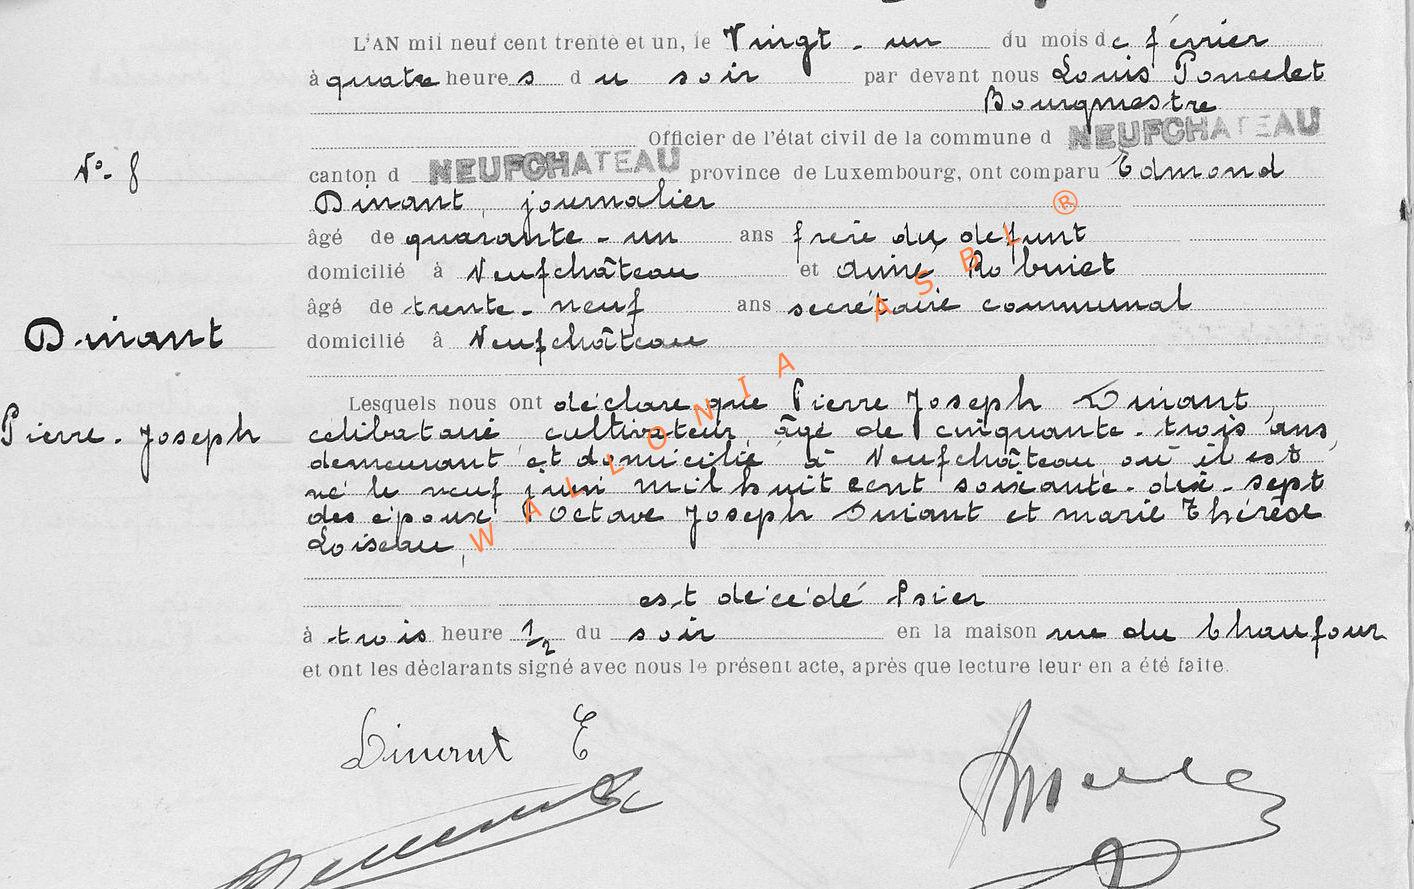 L'AN mil neuf cent trente et un, le Vingt - un du mois de février
à quatre heures du soir par devant nous Louis Poncelet
Bourgmestre
Officier de l'état civil de la commune d NEUFCHATEAU
N° 8
canton d NEUFCHATEAU province de Luxembourg, ont comparu Edmond
Dinant, journalier
âgé de quarante - un ans frère du défunt
domicilié à Neufchâteau et Aimé
âgé de trente - neuf ans secrétaire communal
Dinant
domicilié à Neufchâteau
Pierre - Joseph
Lesquels nous ont déclaré que Pierre Joseph Dinant,
célibataire, cultivateur, âgé de cinquante - trois ans,
demeurant et domicilié à Neufchâteau où il est
né le neuf juin mil huit cent soixante - dix - sept
des époux Octave Joseph Dinant et Marie Thérèse
Loiseau,
est décédé hier
à trois heure 1/2 du soir en la maison rue du Chaufour
et ont les déclarants signé avec nous le présent acte, après que lecture leur en a été faite.
Dinant E
WALLONIA ASBL ®